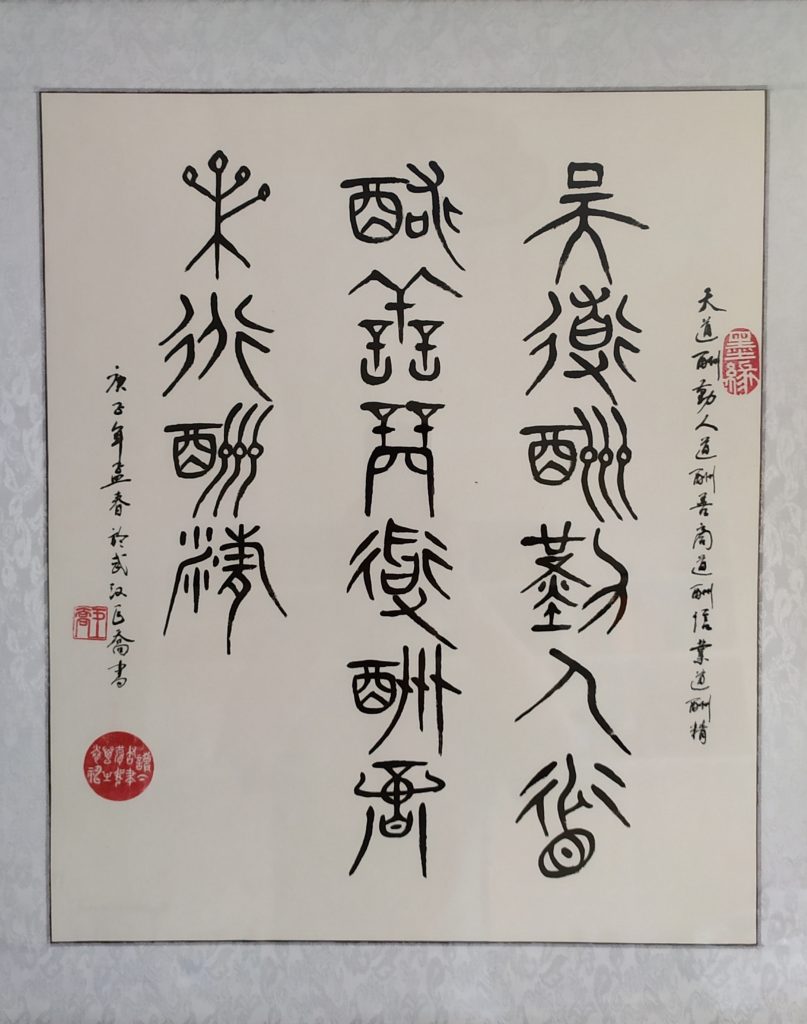 墨緣
天道酬勤人道酬善商道酬信業道酬精
天道酬勤人道
酬善商道酬信
業道酬精
庚子年孟春於武汉喬书